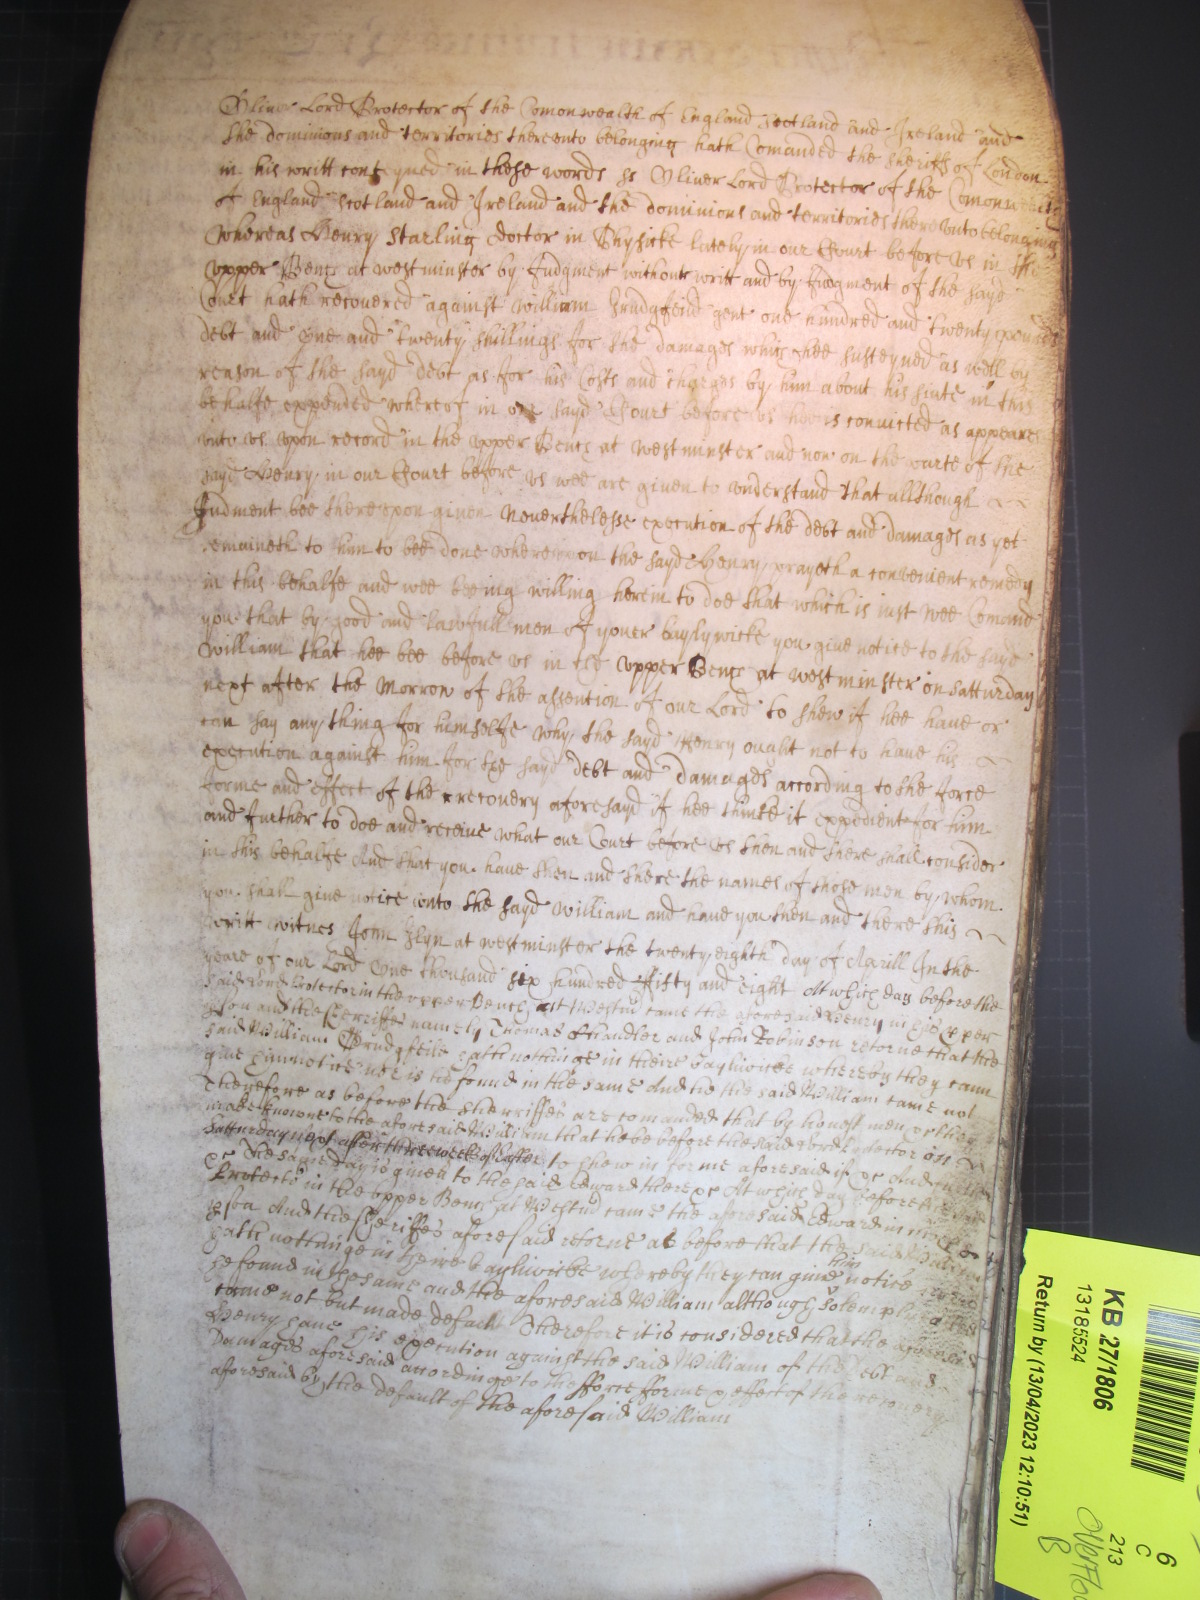 Oliver Lord Protector of the Comonwealth of England Scotland and Ireland and
the dominions and territories thereunto belonging hath Comanded the sheriffs of London
in his writt conteyned in these words ss Oliver Lord Protector of the Comonwealth
of England Scotland and Ireland and the dominions and territories thereunto belonging
Whereas Henry Starling doctor in Physicke lately in our Court before us in the
upper Bench at westminster by Judgment without writt and by Judgment of the sayd
Court hath recovered against William gent one hundred and twenty pounds
debt and One and twenty shillings for the damages which hee susteyned as well by
reason of the sayd debt as for his Costs and charges by him about his suite in this
behalfe expended whereof in our sayd Court before us hee is convicted as appeares
unto us upon record in the upper Bench at westminster and now on the parte of the
sayd Henry in our Court before us wee are given to understand that allthough
Judment bee thereupon given Neverthelesse execution of the debt and damages as yet
remaineth to him to bee done whereupon the sayd Henry prayeth a convenient remedy
in this behalfe and wee beeing willing herein to doe that which is iust wee Comand
you that by good and lawfull men of youer baylywicke you give notice to the sayd
William that hee bee before us in the upper Bench at westminster on Satturday
next after the Morrow of the assention of our Lord to shew if hee have or
can say any thing for himselfe why the sayd Henry ought not to have his
execution against him for the sayd debt and damages according to the force
forme and effect of the recovery aforesayd if hee thinke it expedient for him
and further to doe and receive what our Court before us then and there shall consider
in this behalfe And that you have then and there the names of those men by whom
you shall give notice unto the sayd William and have you then and there this
writt witnes John Glyn at westminster the twenty eighth day of Aprill In the
yeare of our Lord One thousand six hundred fifty and eight At which day before the
said Lord Protector in the upper Bench att Westmr came the aforesaid Henry in his pper
pson and the Sherriffes namely Thomas Chandler and John Robinson retorne that the
said William hath nothinge in their Bayliwicke whereby they cann
give him notice nor is he found in the same And he the said William came not
Therefore as before the Sherriffes are comanded that by honest men &c they
make knowne to the aforesaid William that he be before the said Lord Protector on
Satturday next after three weeks of to shew in forme aforesaid if &c And
&c The same day is given to the said Edward there &c At which day before the said
Protector in the upper Bench at Westmr came the aforesaid Edward in his
pson And the Sheriffes aforesaid retorne as before that the said William
hath nothinge in their Bayliwicke whereby they can give him notice nor is
he found in the same and the aforesaid William although solemply called
came not but made default Therefore it is considered that the aforesaid
Henry have his execution against the said William of the debt and
Damages aforesaid accordinge to the force forme & effect of the recovery
aforesaid by the default of the aforesaid William
KB 27/1806
13185524
Return by (13/04/2023 12:10:51)
6
C
213
B